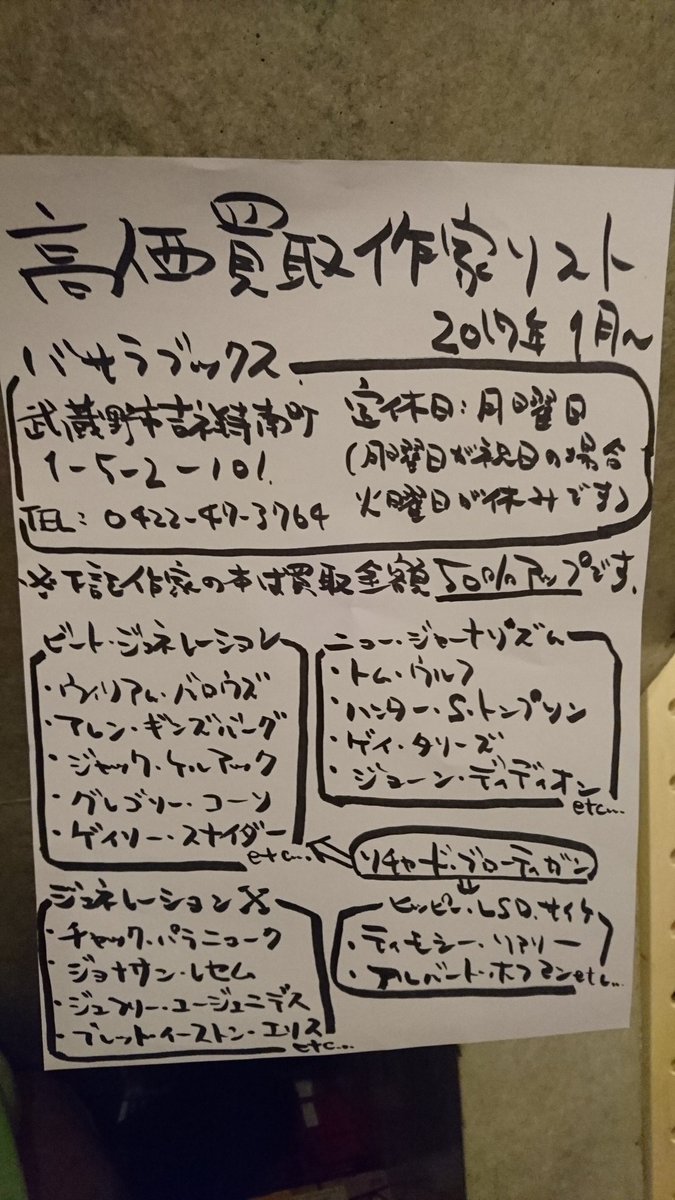 高価買取作家リスト
2017年1月〜
バサラブックス
武蔵野市吉祥寺南町
1-5-2-101
TEL: 0422-47-3764
定休日:月曜日
(月曜日が祝日の場合
火曜日が休みです)
※下記作家の本は買取金額50%アップです。
ビート・ジェネレーション
・ウィリアム・バロウズ
・アレン・ギンズバーグ
・ジャック・ケルアック
・グレゴリー・コーソ
・ゲイリー・スナイダー
etc...
ニュー・ジャーナリズム
・トム・ウルフ
・ハンター・S・トンプソン
・ゲイ・タリーズ
・ジョーン・ディディオン
etc...
リチャード・ブローティガン
ジェネレーションX
・チャック・パラニューク
・ジョナサン・レセム
・ジェフリー・ユージェニデス
・ブレット・イーストン・エリス
etc...
ヒッピー・LSD・サイケ
・ティモシー・リアリー
・アルバート・ホフマン etc...